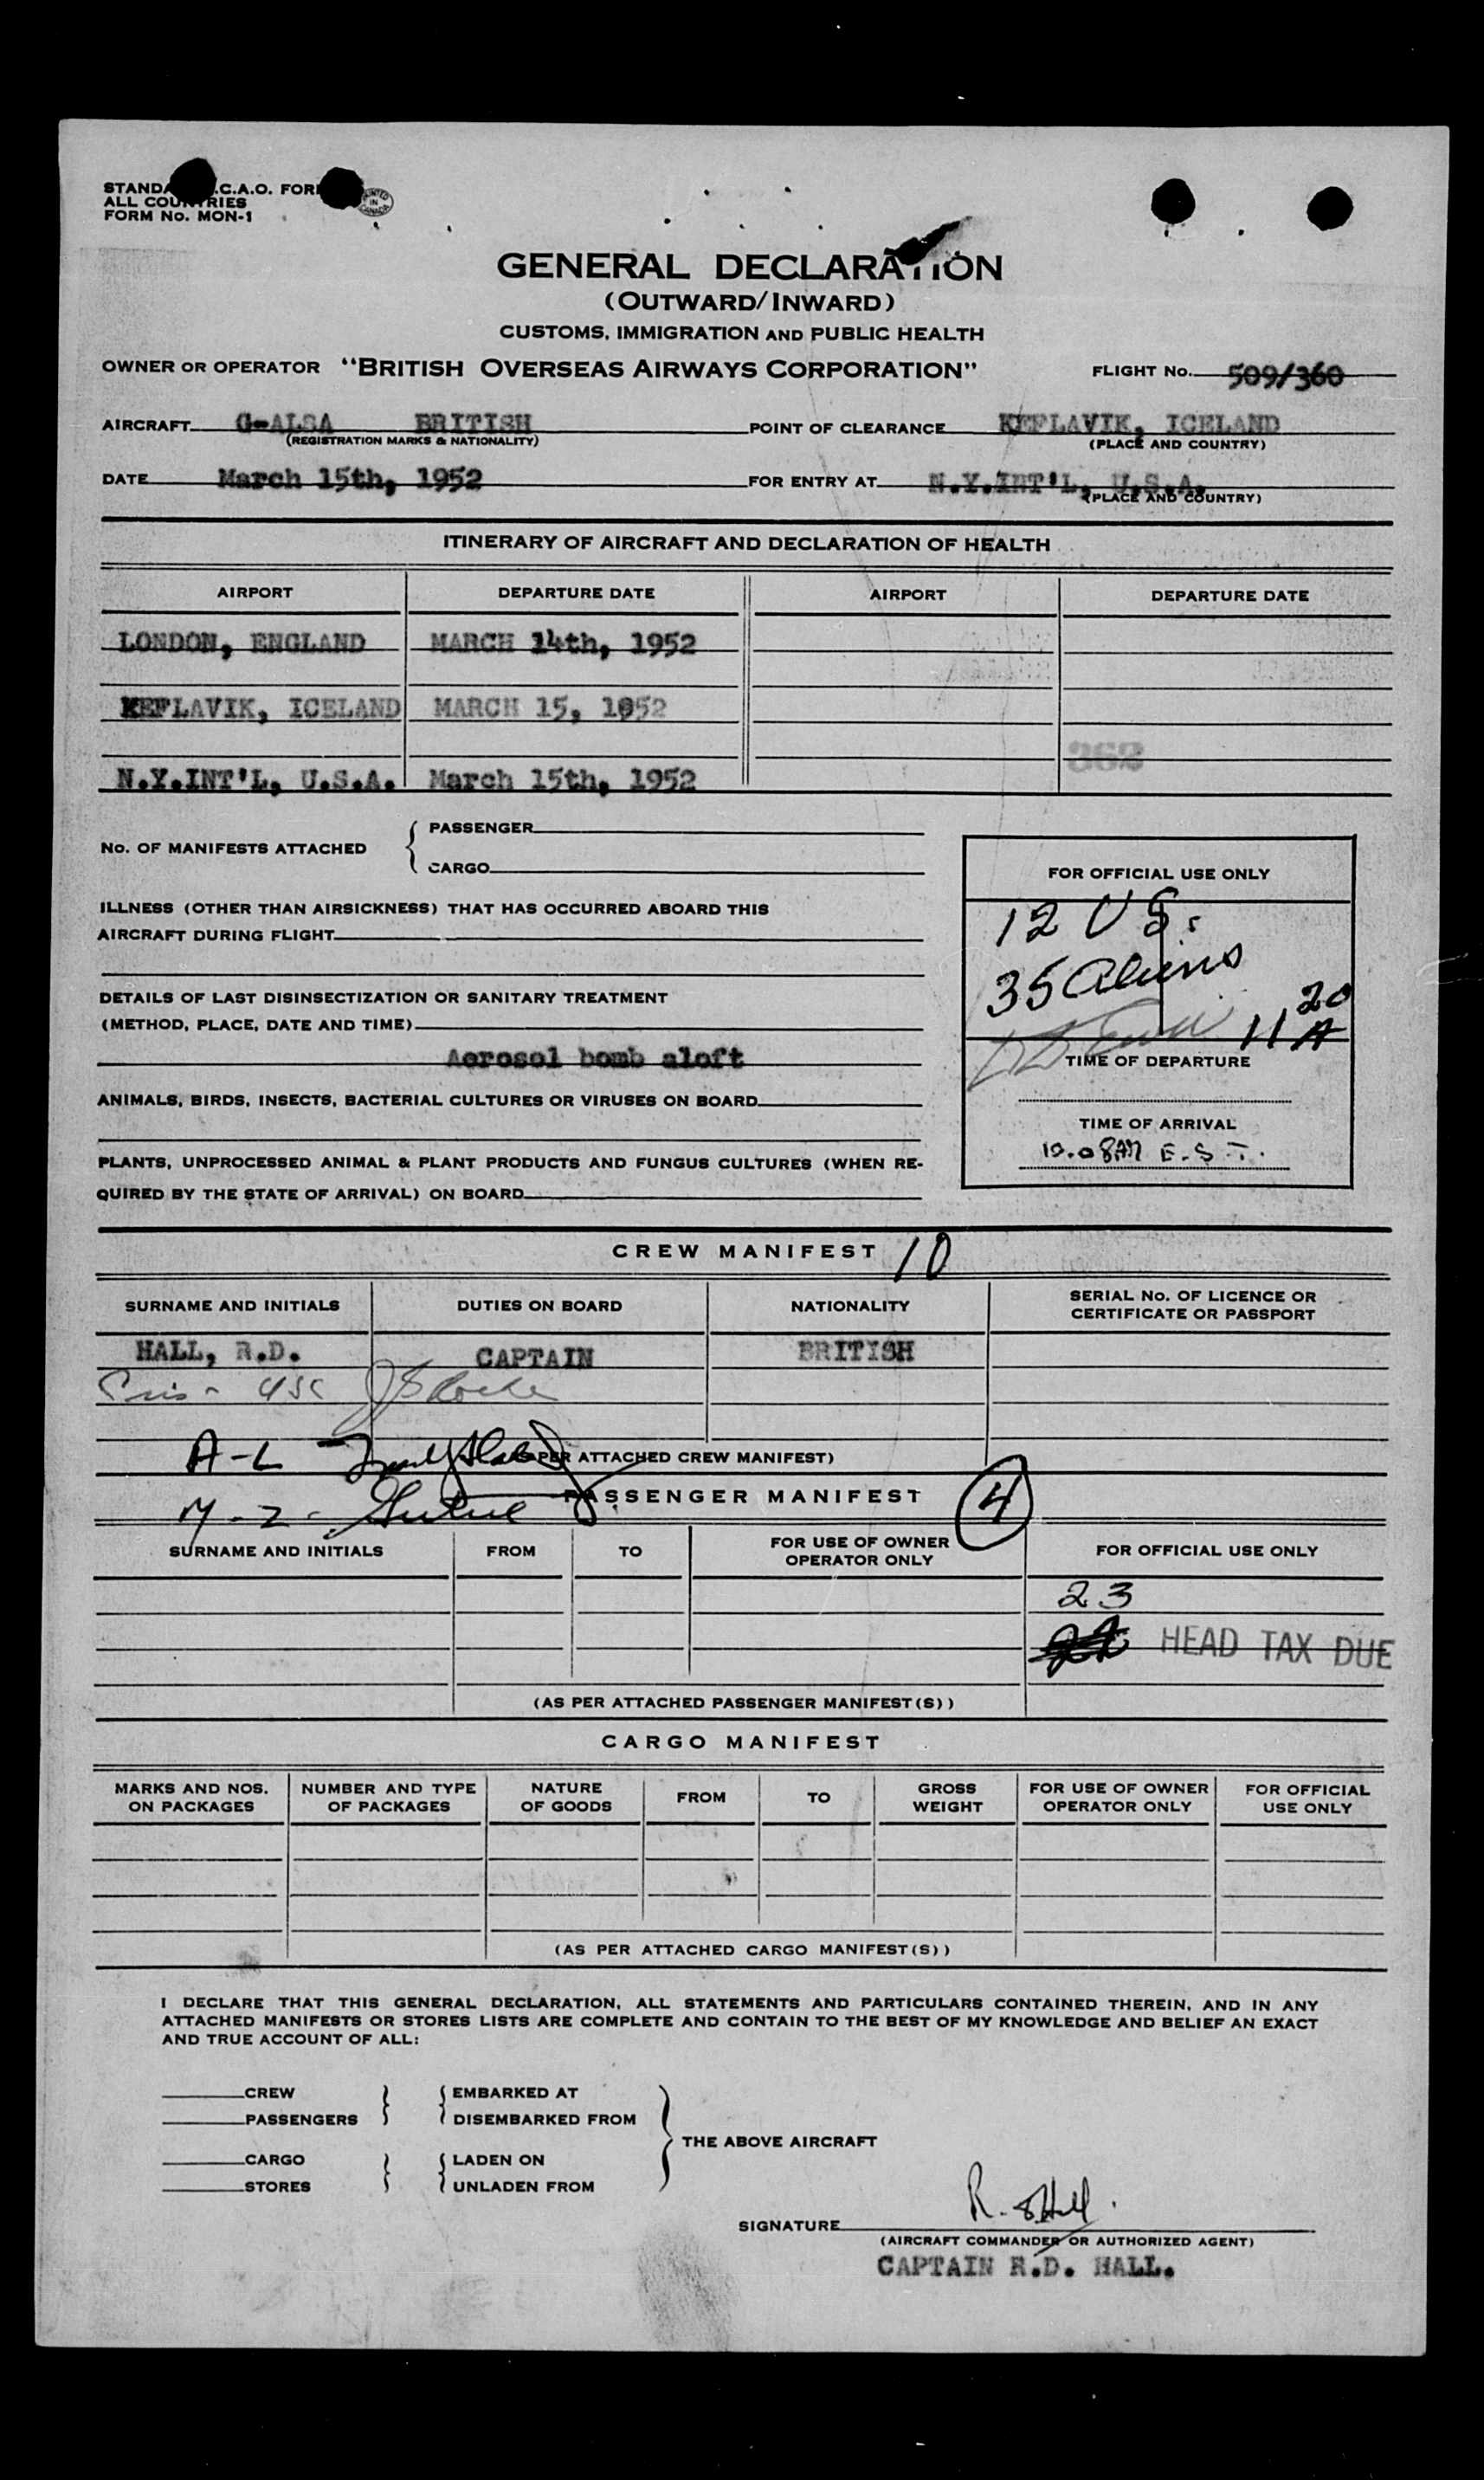 STANDA .C.A.O. FOR
ALL COUNTRIES
FORM No. MON-1
PRINTED IN CANADA
GENERAL DECLARATION
(OUTWARD/INWARD)
CUSTOMS, IMMIGRATION AND PUBLIC HEALTH
OWNER OR OPERATOR "BRITISH OVERSEAS AIRWAYS CORPORATION" FLIGHT No. 509/360
AIRCRAFT G-ALSA BRITISH POINT OF CLEARANCE KEFLAVIK, ICELAND
(REGISTRATION MARKS & NATIONALITY) (PLACE AND COUNTRY)
DATE March 15th, 1952 FOR ENTRY AT N.Y.INT'L, U.S.A.
(PLACE AND COUNTRY)
ITINERARY OF AIRCRAFT AND DECLARATION OF HEALTH
AIRPORT DEPARTURE DATE AIRPORT DEPARTURE DATE
LONDON, ENGLAND MARCH 14th, 1952
KEFLAVIK, ICELAND MARCH 15, 1952
362
N.Y.INT'L, U.S.A. March 15th, 1952
No. OF MANIFESTS ATTACHED { PASSENGER
CARGO
FOR OFFICIAL USE ONLY
12 US.
35 Aliens
11 20 A
TIME OF DEPARTURE
TIME OF ARRIVAL
10.08AM E.S.T.
ILLNESS (OTHER THAN AIRSICKNESS) THAT HAS OCCURRED ABOARD THIS
AIRCRAFT DURING FLIGHT
DETAILS OF LAST DISINSECTIZATION OR SANITARY TREATMENT
(METHOD, PLACE, DATE AND TIME)
Aerosol bomb aloft
ANIMALS, BIRDS, INSECTS, BACTERIAL CULTURES OR VIRUSES ON BOARD
PLANTS, UNPROCESSED ANIMAL & PLANT PRODUCTS AND FUNGUS CULTURES (WHEN RE-
QUIRED BY THE STATE OF ARRIVAL) ON BOARD
CREW MANIFEST 10
SURNAME AND INITIALS DUTIES ON BOARD NATIONALITY SERIAL No. OF LICENCE OR
CERTIFICATE OR PASSPORT
HALL, R.D. CAPTAIN BRITISH
A-L
PER ATTACHED CREW MANIFEST)
M-Z-
PASSENGER MANIFEST 4
SURNAME AND INITIALS FROM TO FOR USE OF OWNER
OPERATOR ONLY FOR OFFICIAL USE ONLY
23
HEAD TAX DUE
(AS PER ATTACHED PASSENGER MANIFEST(S))
CARGO MANIFEST
MARKS AND NOS.
ON PACKAGES NUMBER AND TYPE
OF PACKAGES NATURE
OF GOODS FROM TO GROSS
WEIGHT FOR USE OF OWNER
OPERATOR ONLY FOR OFFICIAL
USE ONLY
(AS PER ATTACHED CARGO MANIFEST(S))
I DECLARE THAT THIS GENERAL DECLARATION, ALL STATEMENTS AND PARTICULARS CONTAINED THEREIN, AND IN ANY
ATTACHED MANIFESTS OR STORES LISTS ARE COMPLETE AND CONTAIN TO THE BEST OF MY KNOWLEDGE AND BELIEF AN EXACT
AND TRUE ACCOUNT OF ALL:
CREW EMBARKED AT
PASSENGERS DISEMBARKED FROM
THE ABOVE AIRCRAFT
CARGO LADEN ON
STORES UNLADEN FROM
SIGNATURE R. D Hall.
(AIRCRAFT COMMANDER OR AUTHORIZED AGENT)
CAPTAIN R.D. HALL.